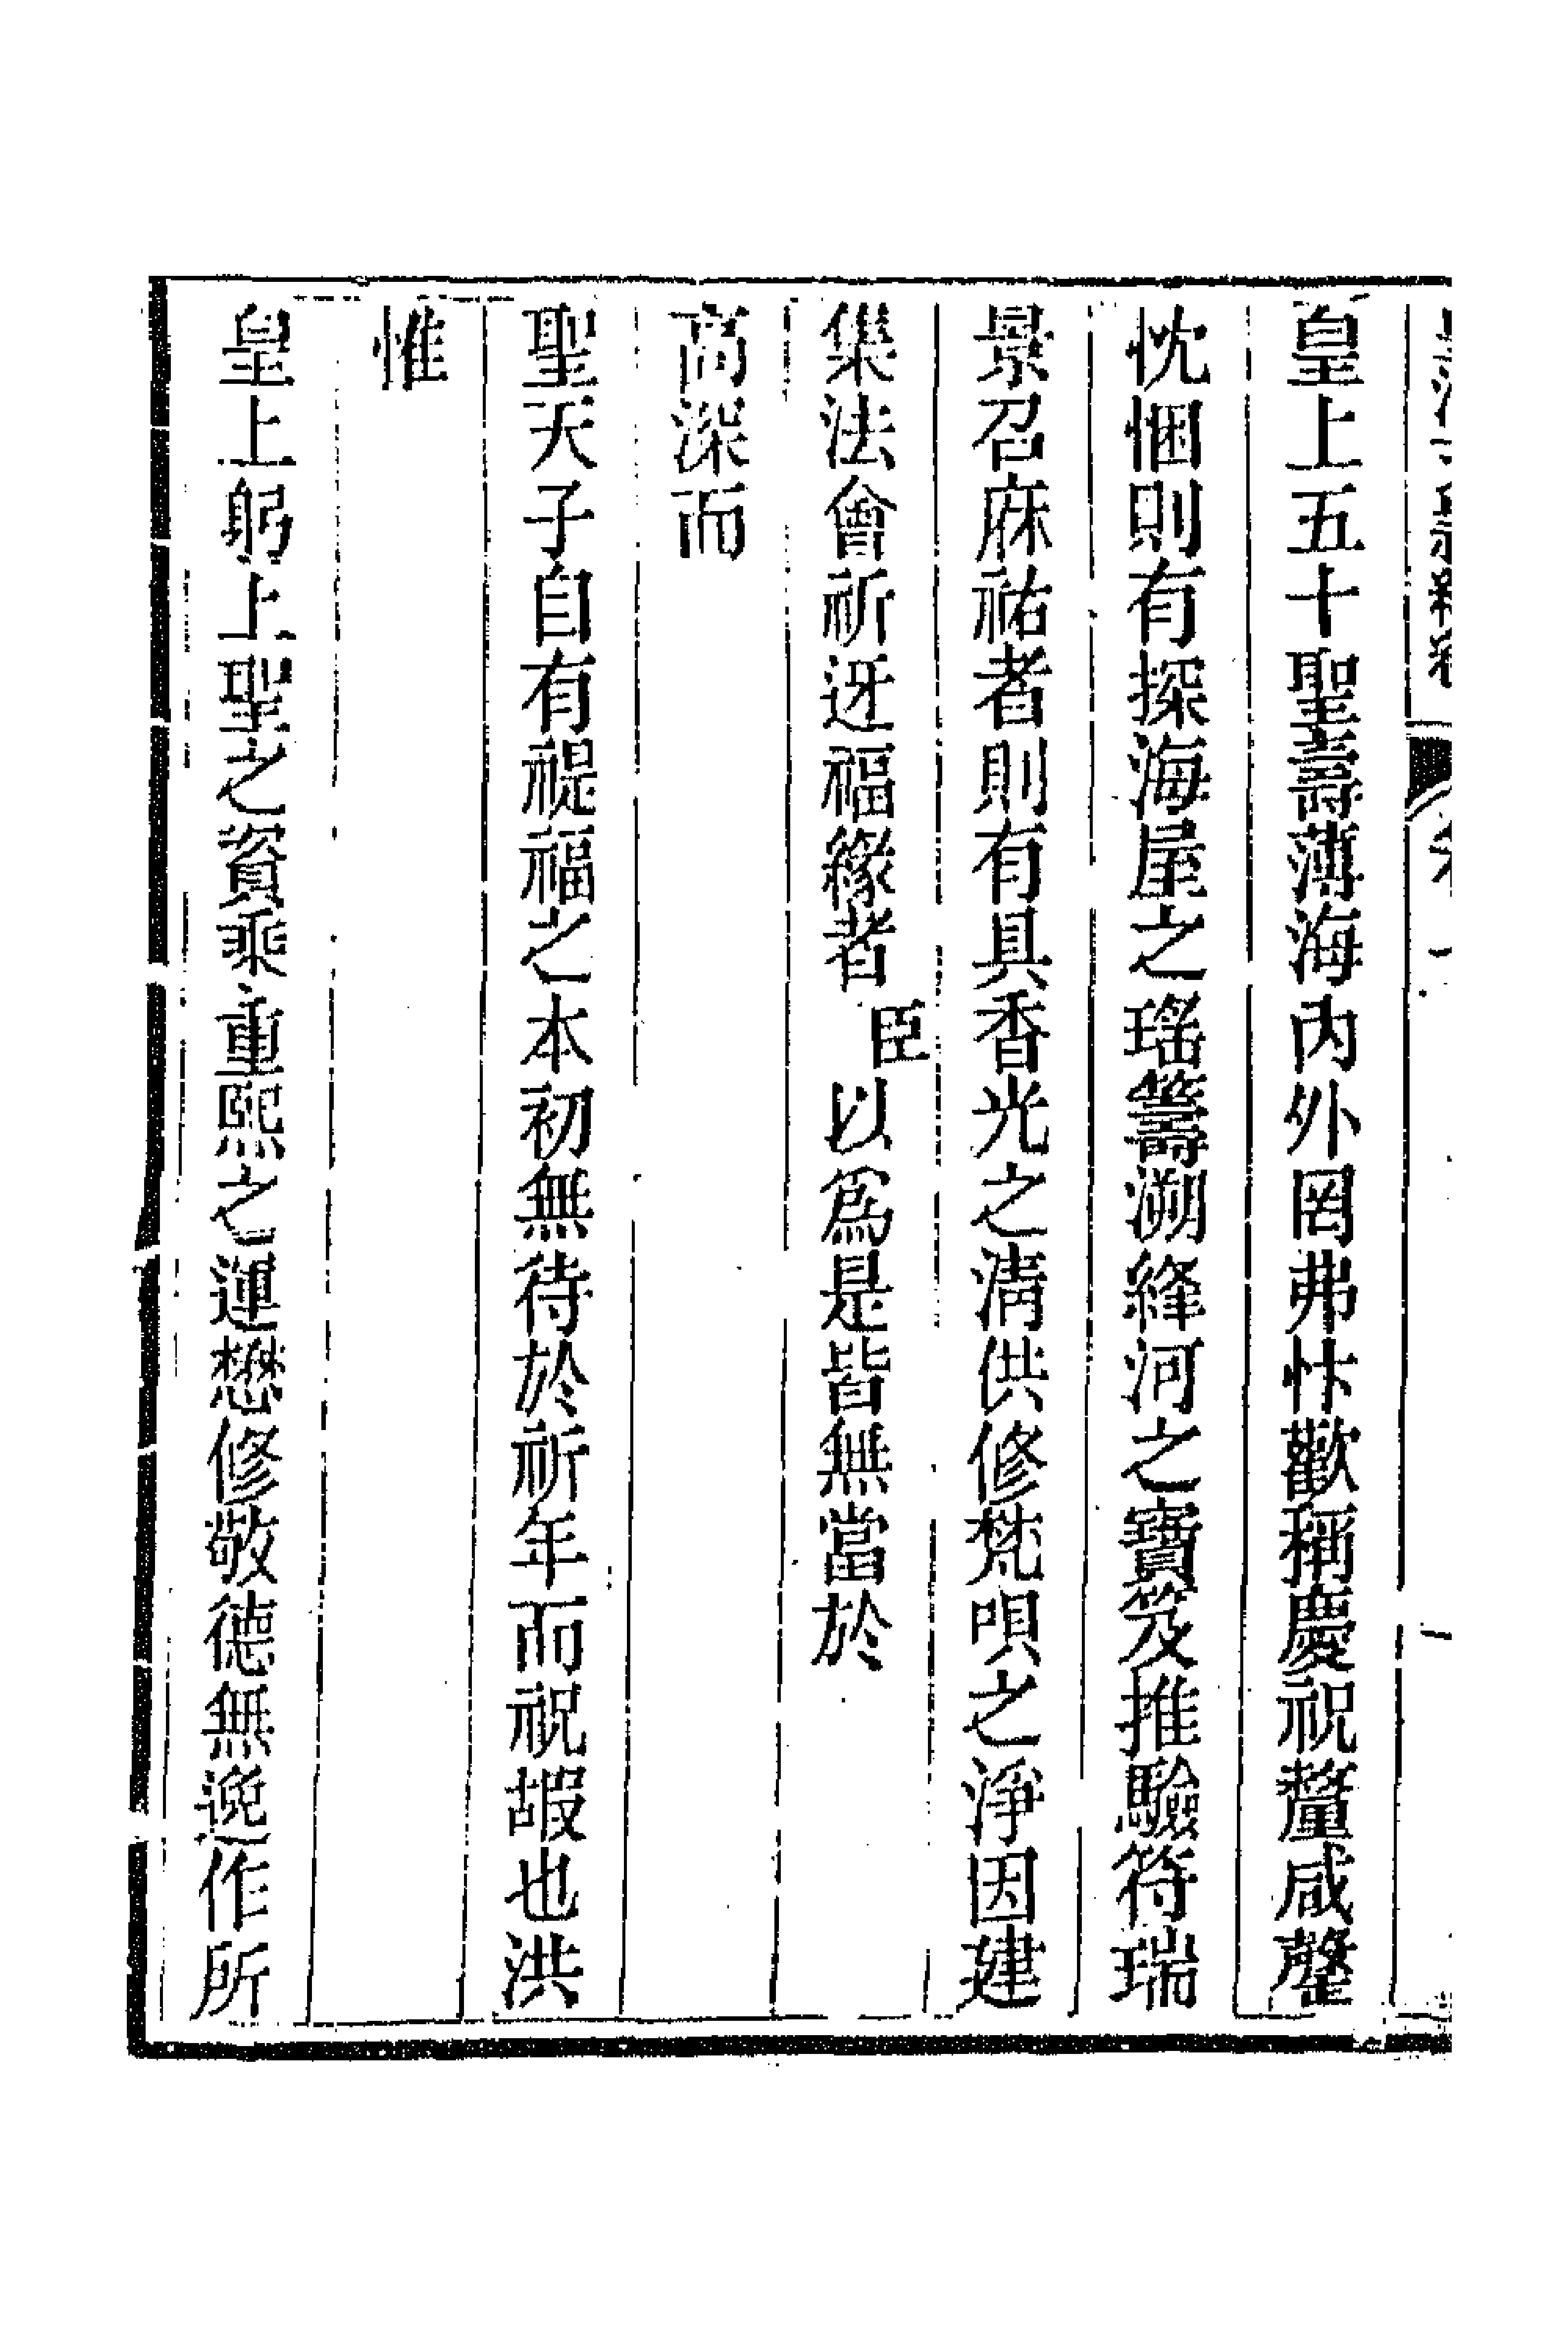 皇上五十聖壽薄海內外罔弗忭歡稱慶祝釐咸罄
忱悃則有探海屋之瑤籌溯絳河之寶笈推驗符瑞
景召庥祐者則有具香光之淸供修梵唄之淨因建
集法會祈迓福緣者臣以爲是皆無當於
高深而
聖天子自有禔福之本初無待於祈年而祝嘏也洪
惟
皇上躬上聖之資乘重熙之運懋修敬德無逸作所